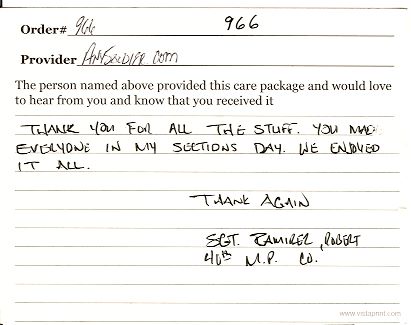 Order# 966 966
Provider ANYSOLDIER.COM
The person named above provided this care package and would love
to hear from you and know that you received it
THANK YOU FOR ALL THE STUFF. YOU MADE
EVERYONE IN MY SECTIONS DAY. WE ENJOYED
IT ALL.
THANK AGAIN
SGT. RAMIREZ, ROBERT
46th M.P. CO.
www.vistaprint.com